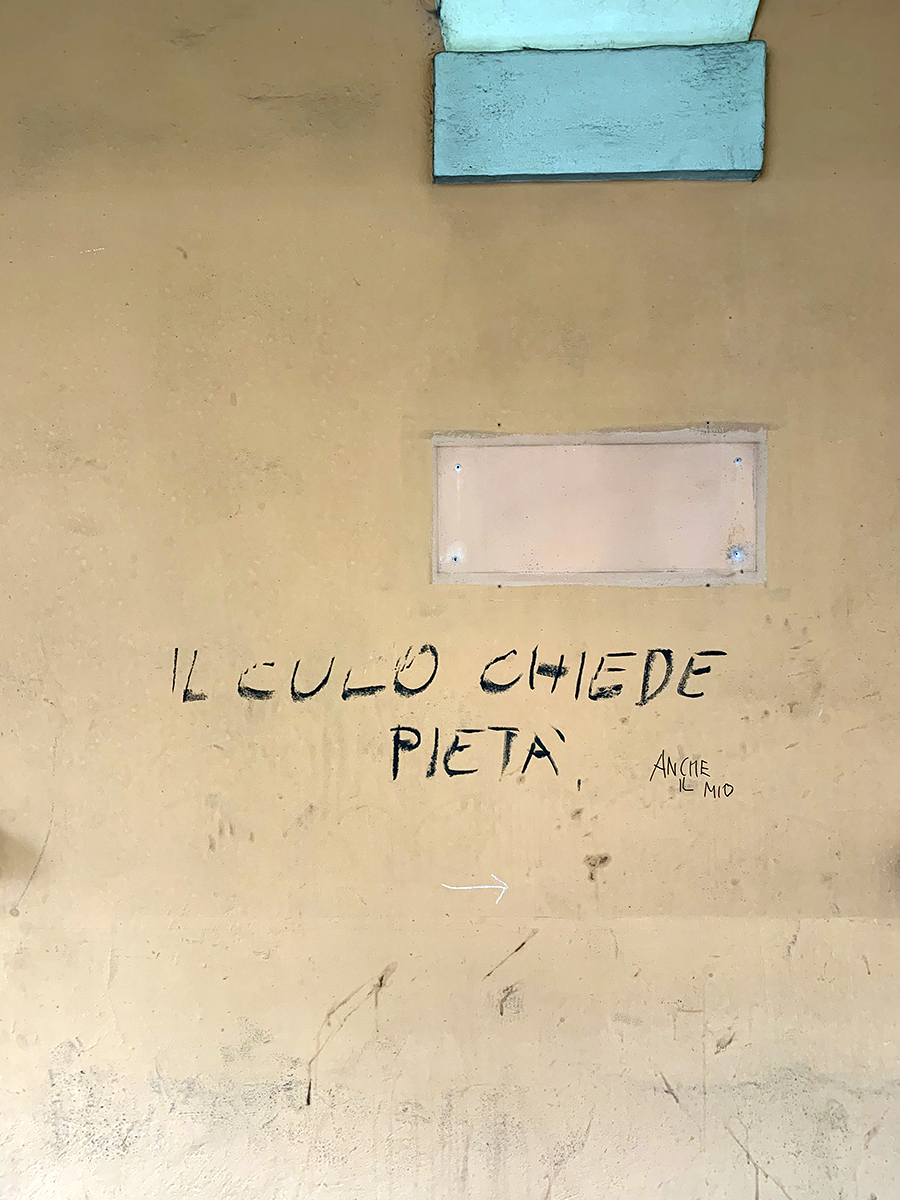 IL CULO CHIEDE
PIETÀ,
ANCHE
IL MIO